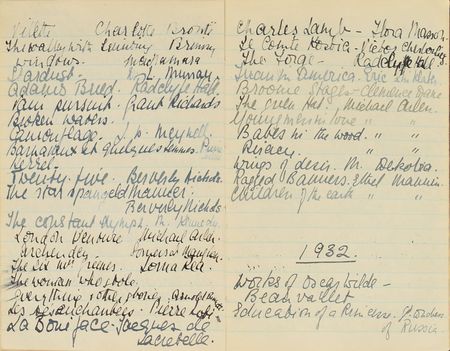 Villette, Charlotte Brontë
The valley with Evening
windows. Macnamara
Stardust. D. L. Murray
Adam's Breed. Radclyffe Hall.
Vain pursuit. Grant Richards
Broken waters.
Camouflage. Meynell.
Barnavaux et quelques femmes. Pierre
Twenty five. Beverley Nichols.
The star spangled manner.
Beverley Nichols
The constant Nymph. M. Kennedy.
London Venture Michael Arlen
Ashenden. Somerset Maugham.
The six Mrs Greenes. Lorna Rea
The woman who stole
Everything & other stories, Arnold Bennett
Les Désenchantées. Pierre Loti
La Boniface. Jacques de
Lacretelle.
Charles Lamb - Flora Masson.
Le Comte Kostia -
The Forge - Radclyffe Hall
Juan in America. Eric Linklater.
Broome Stages - Clemence Dane.
The Green Hat, Michael Arlen.
Young men in love " "
Babes in the wood. " "
Piracy " "
Wings of desire. M. Dekobra.
Ragged Banners. Ethel Mannin.
Children of the earth " "
1932
Works of Oscar Wilde -
Beau vallet
Education of a Princess.
of Russia.